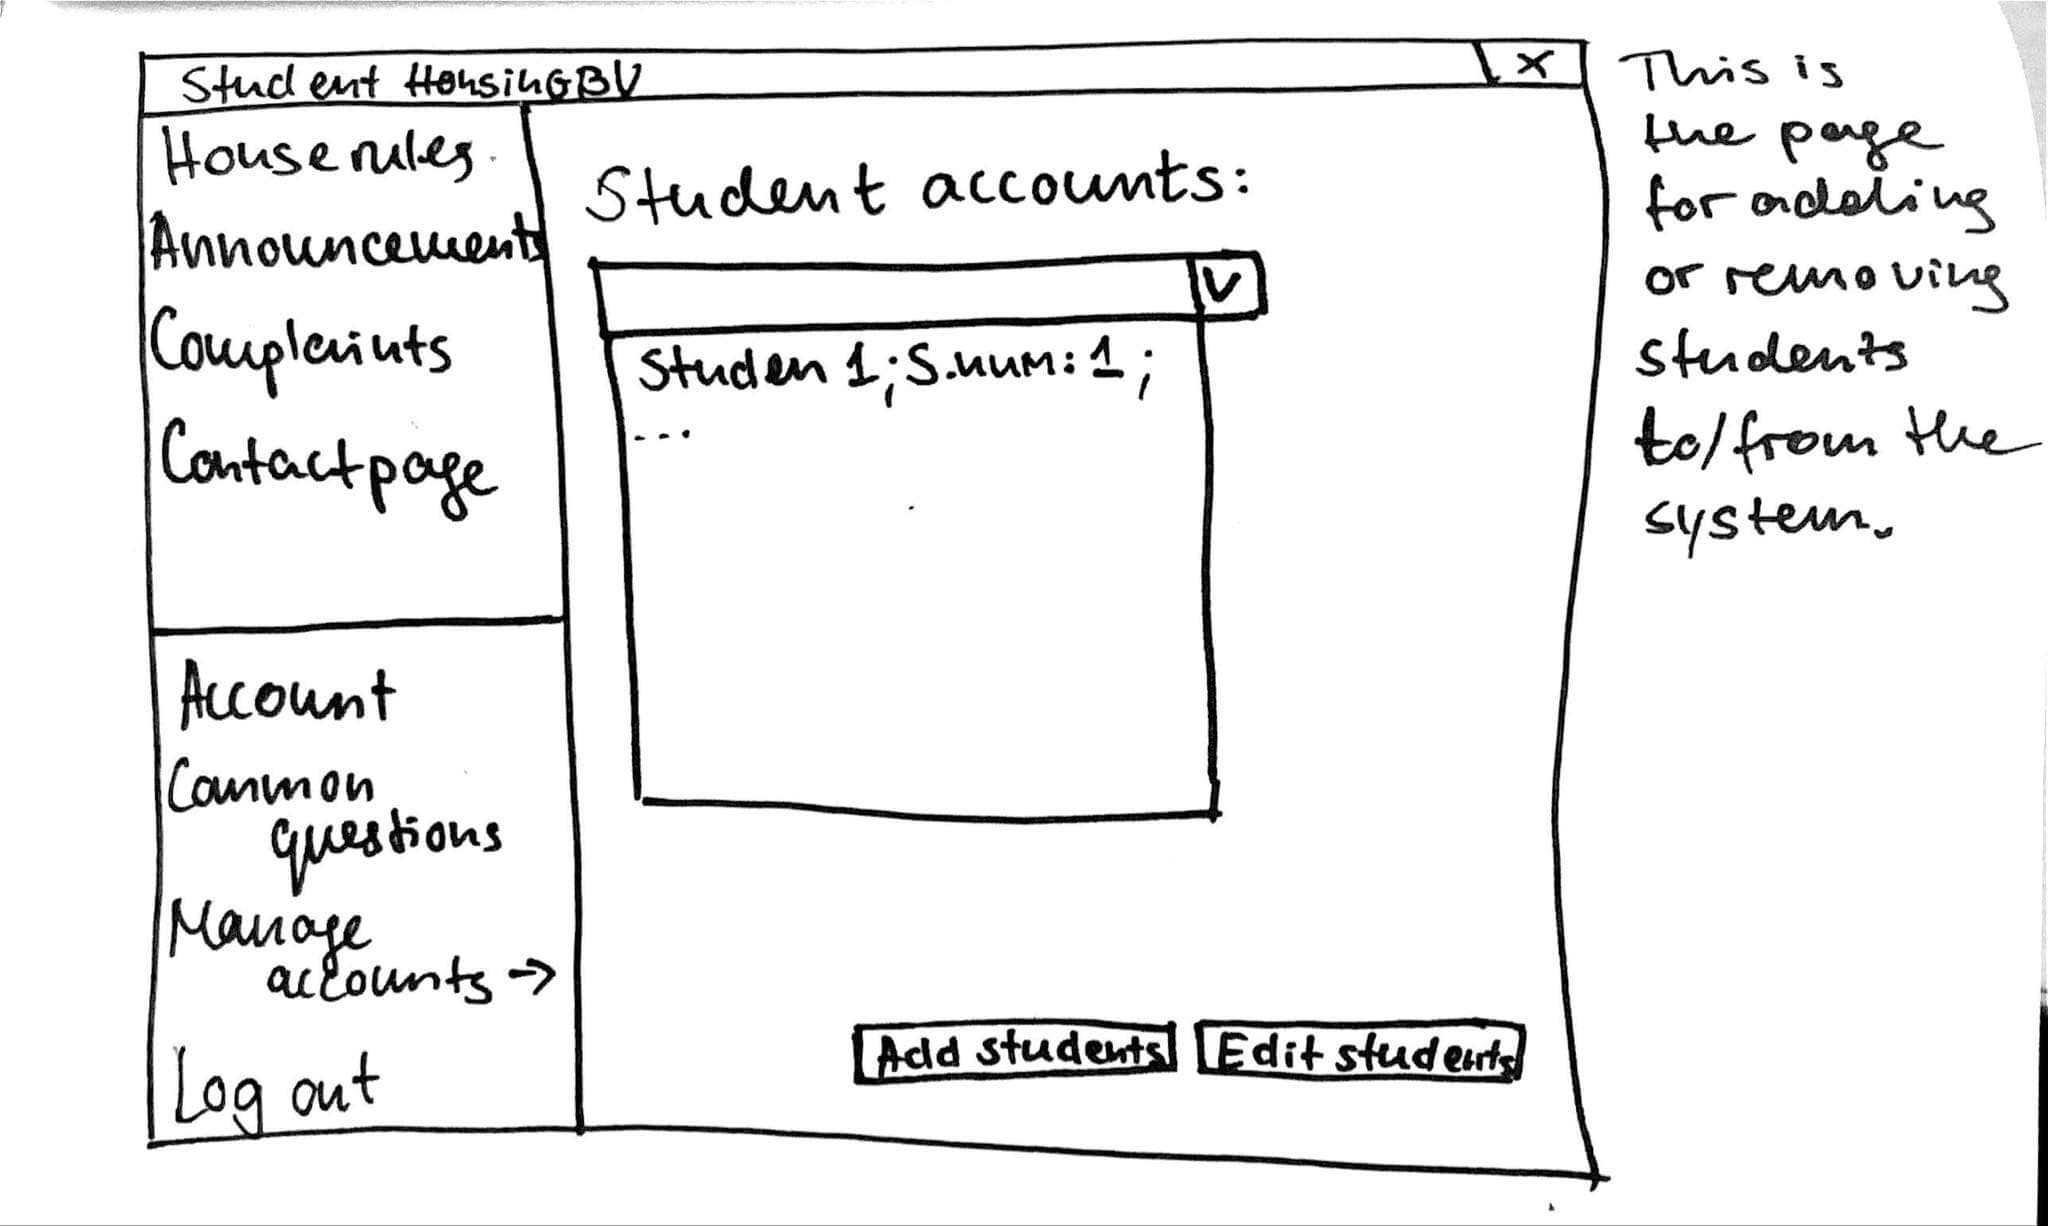 Student HousinGBV
X
House rules
Announcements
Complaints
Contact page
Account
Common
questions
Manage
accounts →
Log out
Student accounts:
V
Studen 1; S.num: 1;
...
Add students
Edit students
This is
the page
for adding
or removing
students
to/from the
system.